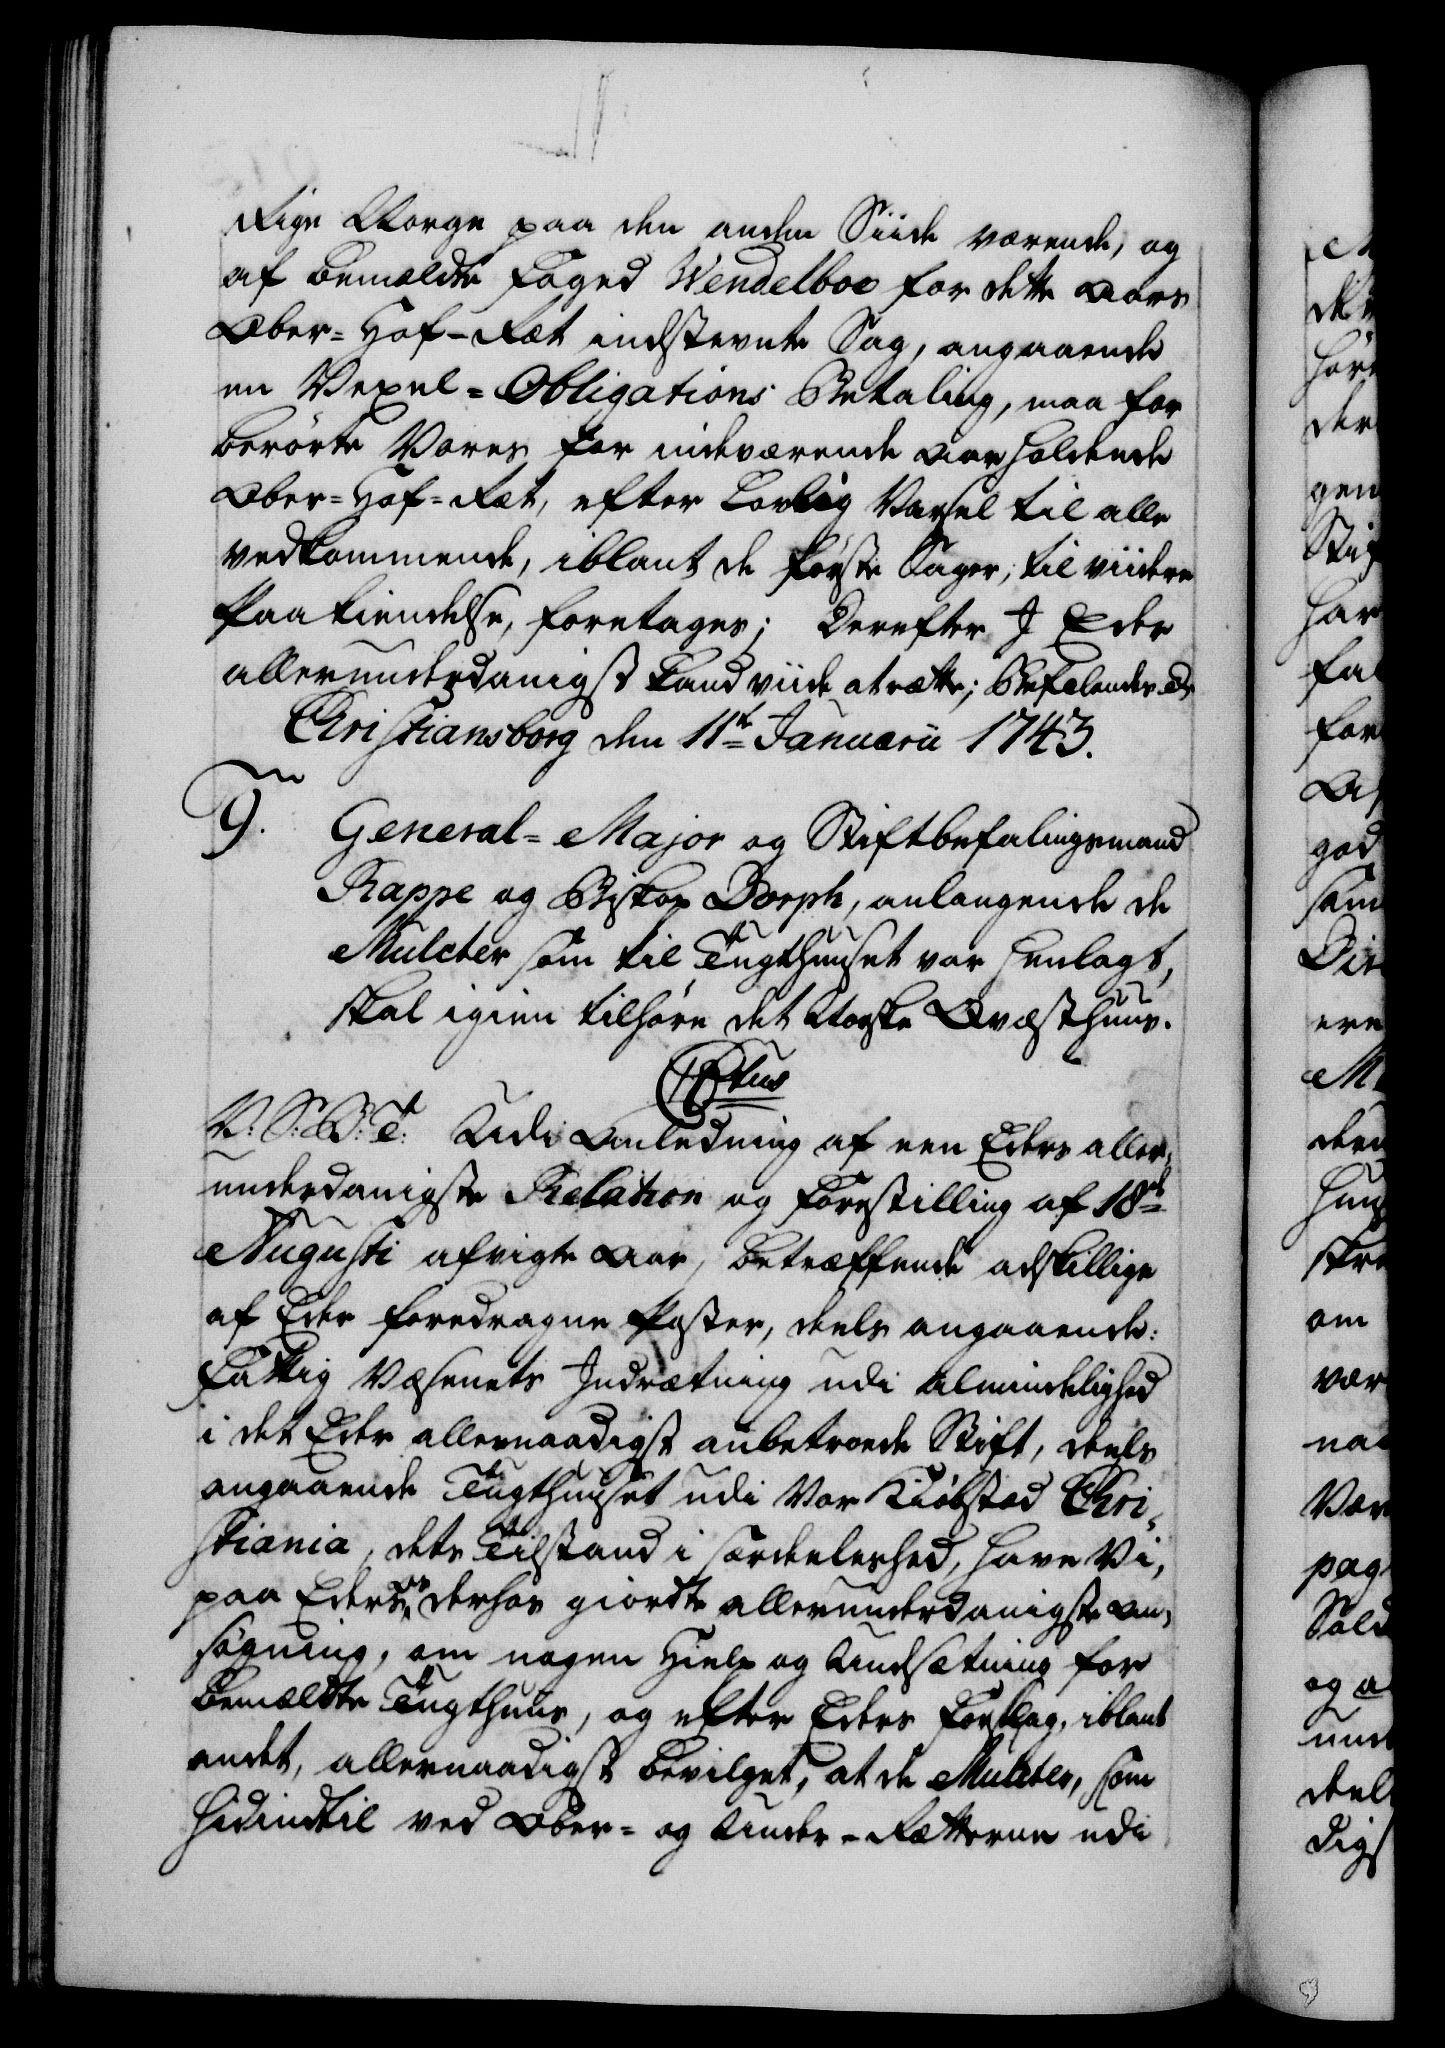 Rige Norge paa den anden Siide værende, og
af bemældte Foged Wendelboe for dette Aars
Ober=Hof-Ræt indstevnte Sag, angaaende
en Vexel=Obligations Betaling, maa for
berørte Vores for indeværende Aar holdende
Ober=Hof=Ræt, efter Lovlig Varsel til alle
vedkommende, iblant de første Sager, til viidere
Paakiendelse, foretages; Derefter I Eder
allerunderdanigst kand viide at rætte; Befalendes
Christiansborg den 11te Januarii 1743.
9. General=Major og Stiftbefalingsmand
Rappe og Biskop Dorph, anlangende de
Mulcter som til Tugthuuset var henlagt,
skal igien tilhøre det Norske Qvæsthuus.
V: S: B: T: Udi Anledning af een Eders aller,
underdanigste Relation og Forestilling af 18de
Augusti afvigte Aar, betræffende adskillige
af Eder foredragne Poster, deels angaaende
Fattig Væsenets Indrætning udi Almindelighed
i det Eder allernaadigst anbetroede Stift, deels
angaaende Tugthuuset udi Vor Kiøbstad Chri,
stiania, dets Tilstand i særdeleshed, have Vi,
paa Eders derhos giordte allerunderdanigste An,
søgning, om nogen Hielp og Undsætning for
bemældte Tugthuus, og efter Eders Forslag, iblant
andet, allernaadigst bevilget, at de Mulcter, som
hidindtil ved Ober= og Under=Rætterne udi